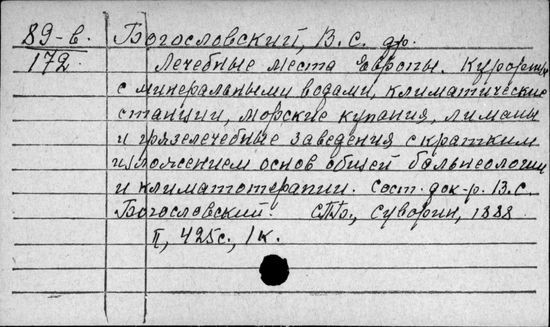 89-в. Богословский, В. С. др.
172. Лечебные места Европы. Курорты
с минеральными водами, климатические
станции, морские купания, лиманы
и грязелечебные заведения с кратким
изложением основ общей бальнеологии
и климатотерапии. Сост. док-р. В. С.
Богословский. СПб., Суворин, 1888
II, 425 с., 1 к.